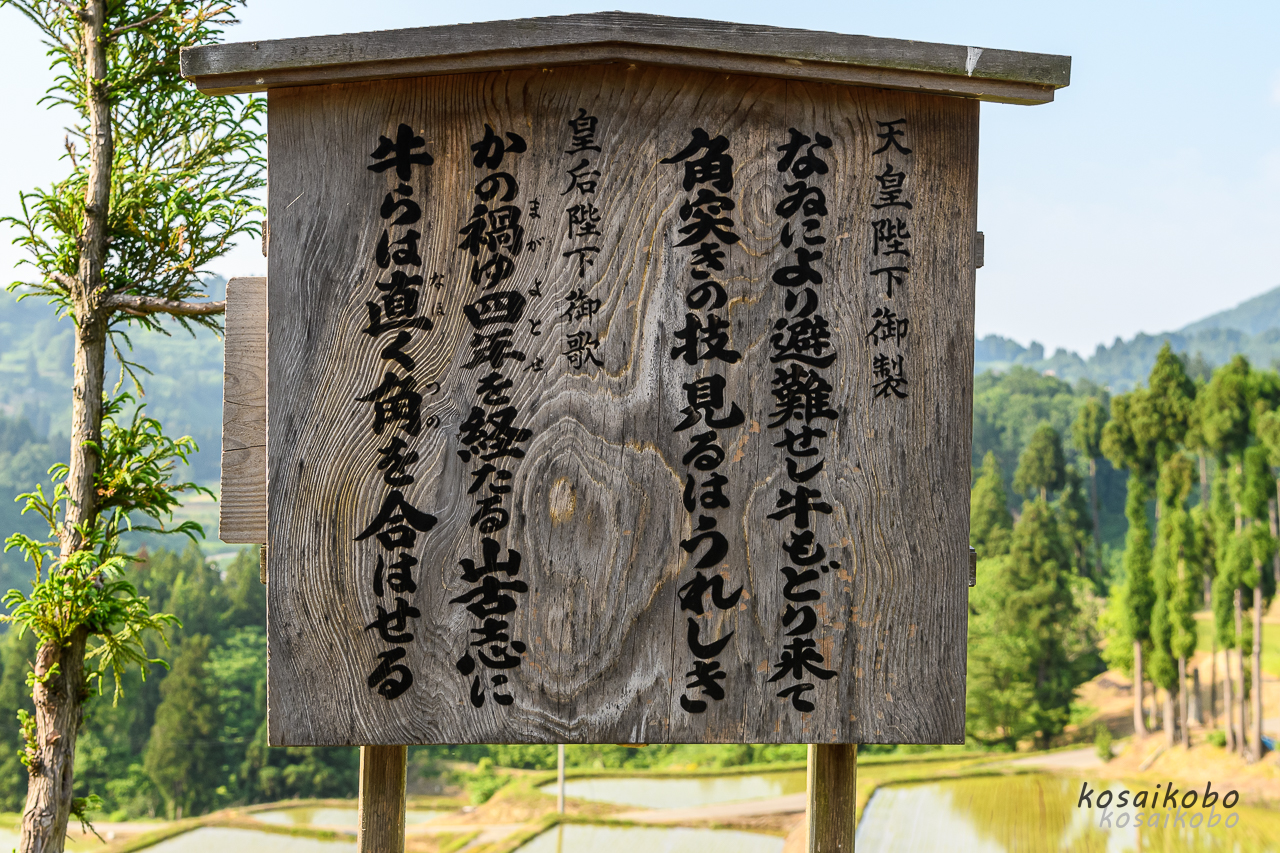 天皇陛下御製
なゐにより避難せし牛もどり来て
角突きの技見るはうれしき
皇后陛下御歌
かの禍ゆ四年を経たる山古志に
まが
よとせ
牛らは直く角を合はせる
なほ
つの
kosaikobo
kosaikobo